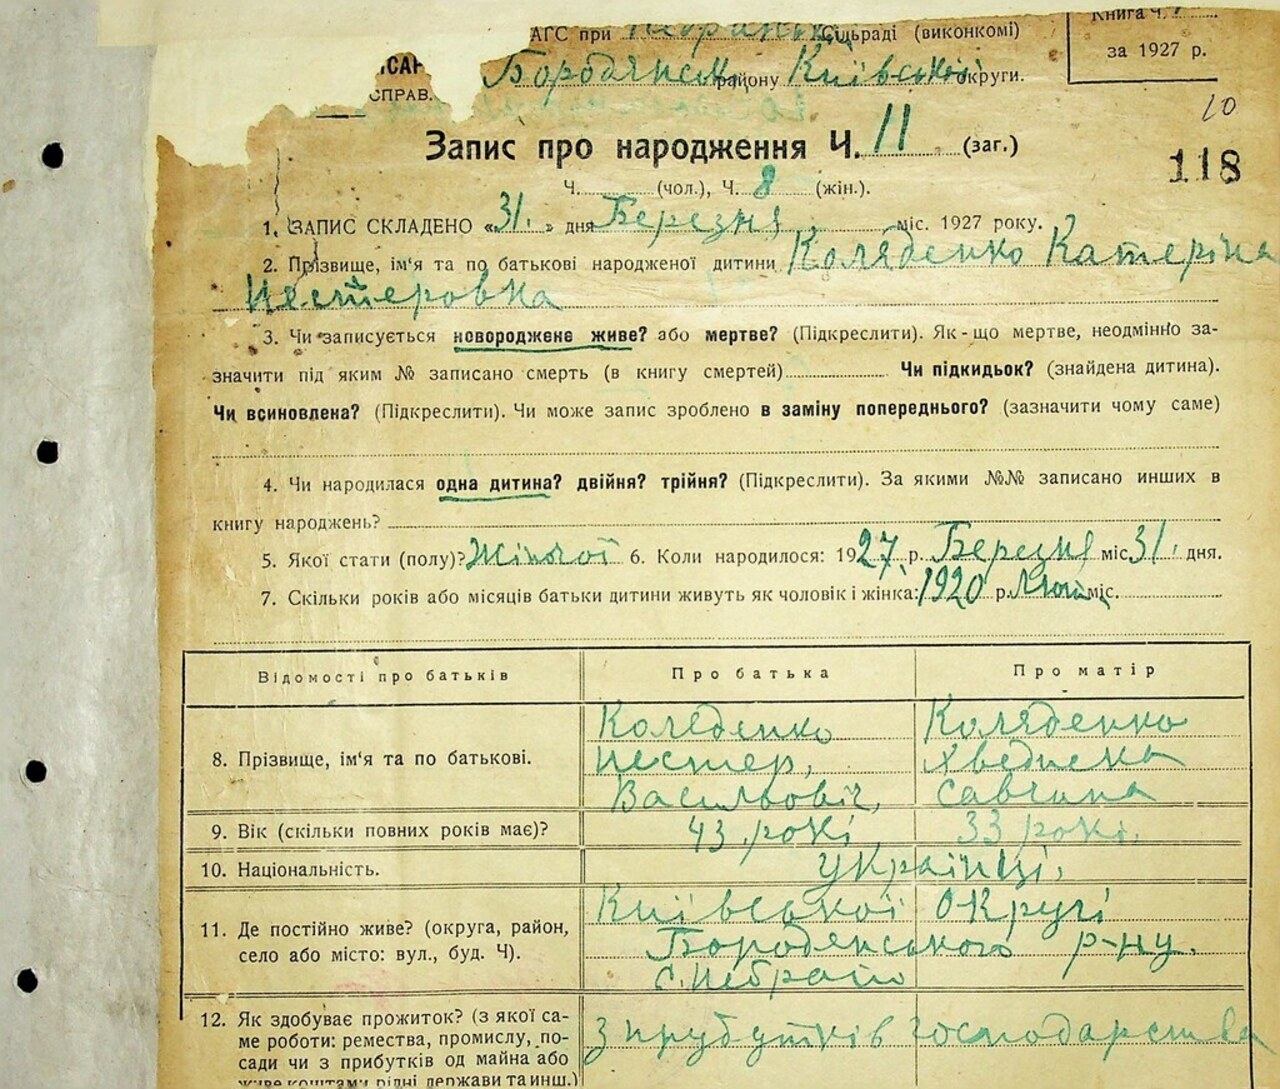 АГС при Сільраді (виконкомі)
Книга Ч.
за 1927 р.
СПРАВ.
Бородянськ району Київської округи.
10
Запис про народження Ч. 11 (заг.)
118
Ч. (чол.), Ч. 8 (жін.).
1. ЗАПИС СКЛАДЕНО «31.» дня Березня міс. 1927 року.
2. Прізвище, ім'я та по батькові народженої дитини Коляденко Катеріна
Нестеровна
3. Чи записується новороджене живе? або мертве? (Підкреслити). Як-що мертве, неодмінно за-
значити під яким № записано смерть (в книгу смертей) Чи підкидьок? (знайдена дитина).
Чи всиновлена? (Підкреслити). Чи може запис зроблено в заміну попереднього? (зазначити чому саме)
4. Чи народилася одна дитина? двійня? трійня? (Підкреслити). За якими №№ записано инших в
книгу народжень?
5. Якої стати (полу)? Жіночої 6. Коли народилося: 1927 р. Березня міс. 31. дня.
7. Скільки років або місяців батьки дитини живуть як чоловік і жінка: 1920 р. міс.
Відомості про батьків Про батька Про матір
8. Прізвище, ім'я та по батькові.
Коляденко Коляденко
Нестер,
Васильович, Савчина
9. Вік (скільки повних років має)? 43 рокі 33 рокі.
10. Національність. українці,
11. Де постійно живе? (округа, район,
село або місто: вул., буд. Ч).
Київської Округі
Бородянського р-ну.
12. Як здобуває прожиток? (з якої са-
ме роботи: ремества, промислу, по-
сади чи з прибутків од майна або
живе коштами рідні держави та инш.)
з прубутків господарства